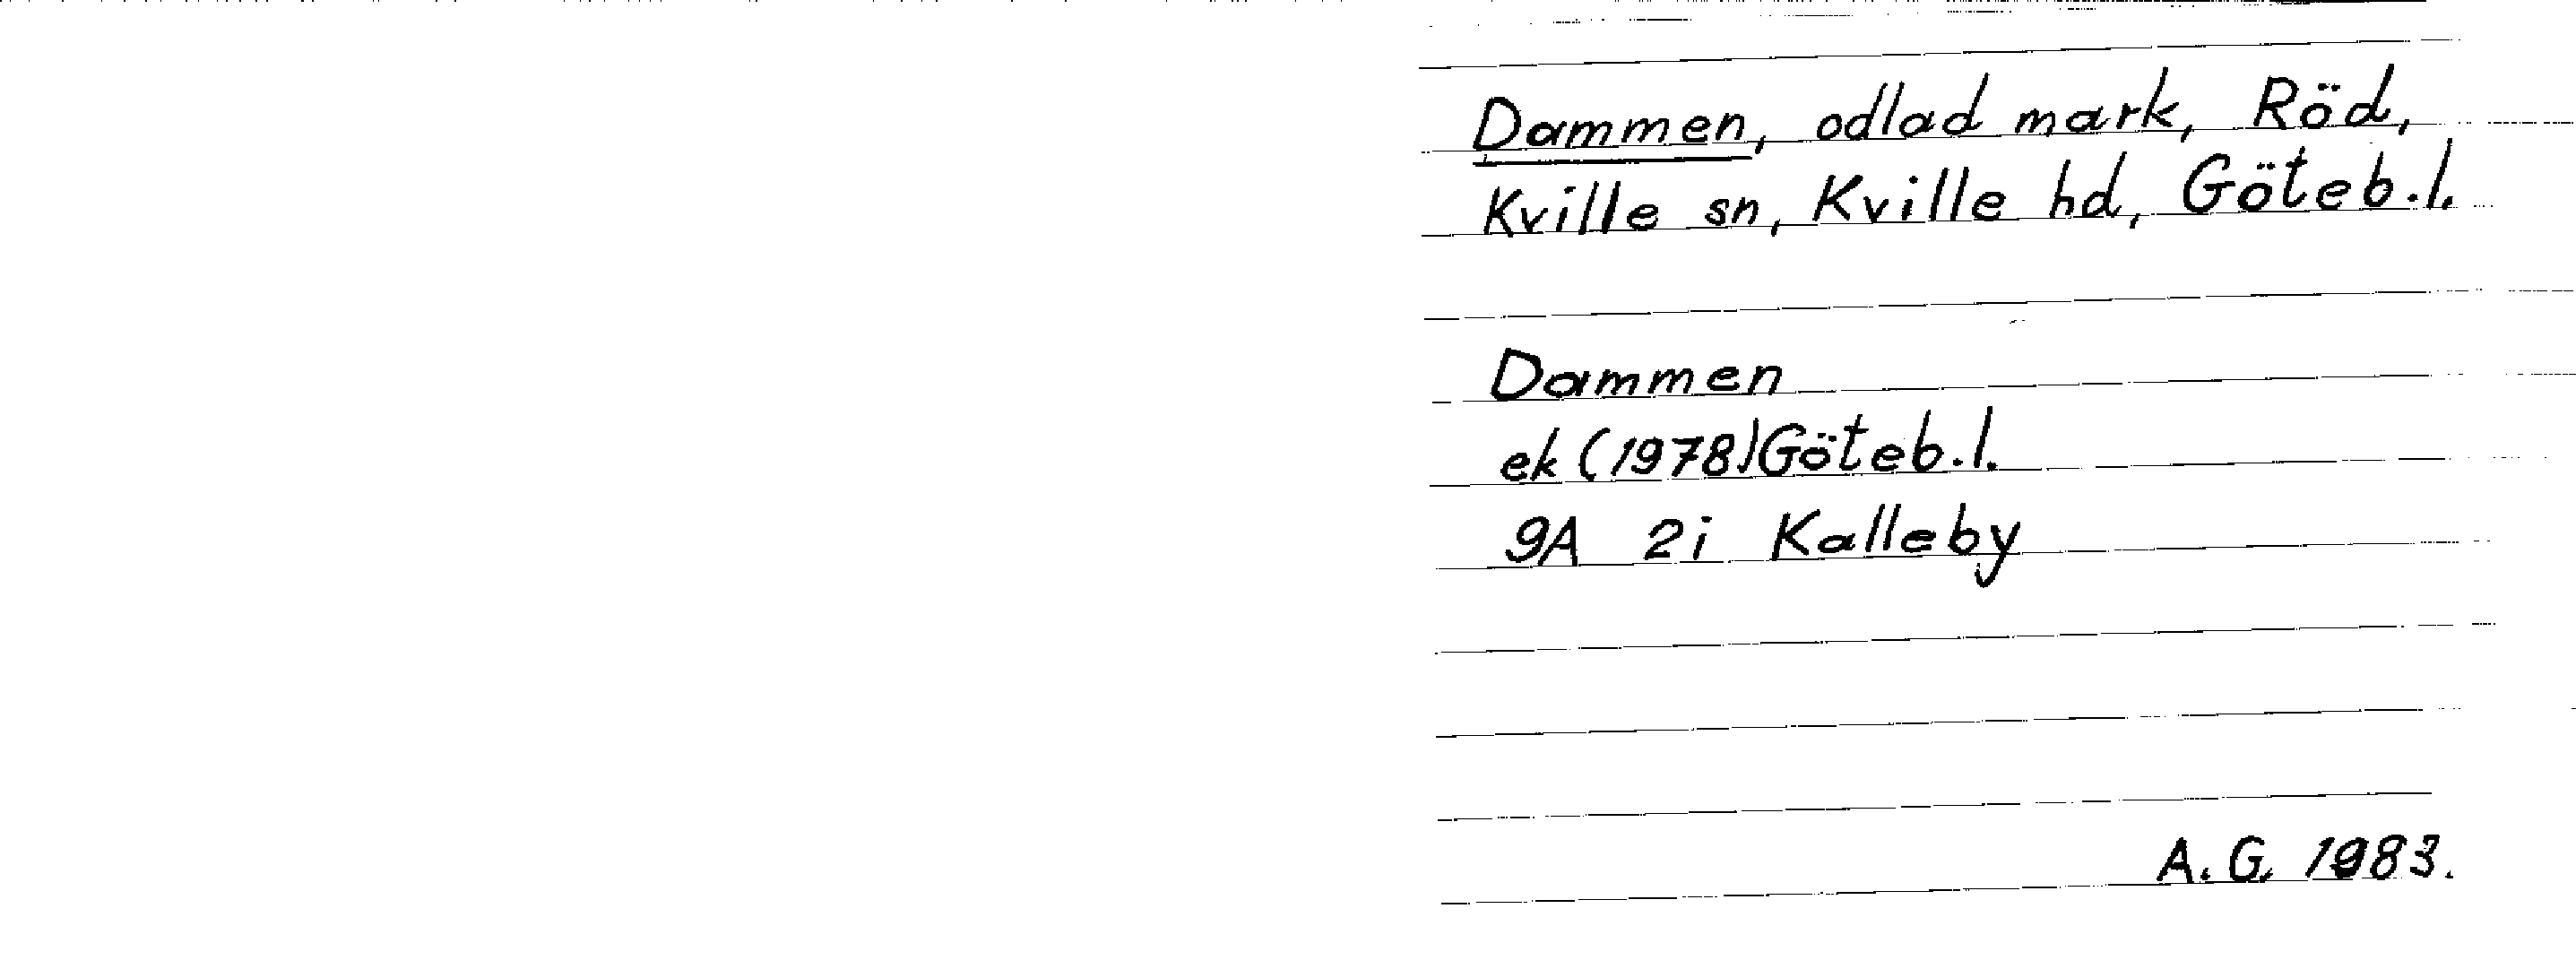 Dammen, odlad mark, Röd,
Kville sn, Kville hd, Göteb.l.
Dammen
ek (1978) Göteb.l.
9A 2i Kalleby
A.G. 1983.